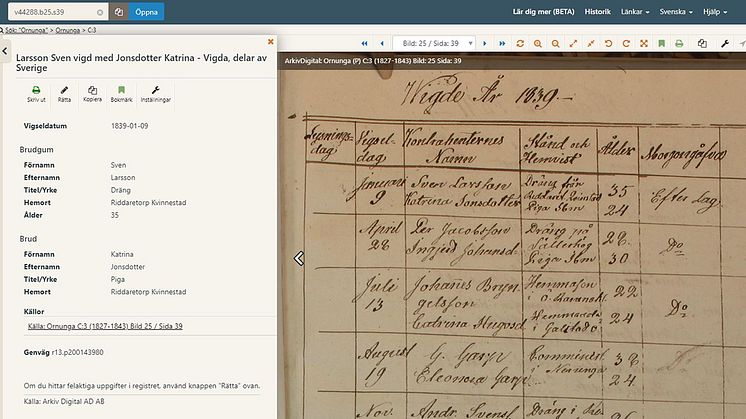 v44288.b25.s39
Öppna
Lär dig mer (BETA) Historik Länkar Svenska Hjälp
Sök: "Ornunga" > Ornunga > C:3
Bild: 25 / Sida: 39
Larsson Sven vigd med Jonsdotter Katrina - Vigda, delar av
Sverige
Skriv ut Rätta Kopiera Bokmärk Inställningar
Vigseldatum 1839-01-09
Brudgum
Förnamn Sven
Efternamn Larsson
Titel/Yrke Dräng
Hemort Riddaretorp Kvinnestad
Ålder 35
Brud
Förnamn Katrina
Efternamn Jonsdotter
Titel/Yrke Piga
Hemort Riddaretorp Kvinnestad
Källor
Källa: Ornunga C:3 (1827-1843) Bild 25 / Sida 39
Genväg r13.p200143980
Om du hittar felaktiga uppgifter i registret, använd knappen "Rätta" ovan.
Källa: Arkiv Digital AD AB
ArkivDigital: Ornunga (P) C:3 (1827-1843) Bild: 25 Sida: 39
Wigde År 1839.-
Lysnings- Vigsel- Kontrahenternes Stånd och Ålder Morgongåfva
dag dag Namn Hemvist
Januari Sven Larsson Dräng från 35 Efter Lag
9 Katrina Jonsdotter Piga Ibm 24
April Per Jacobsson Dräng på 28.
28 Ingjerd Johansd. Piga Ibm 30 Do
Juli Johanes Bryn- Hemmason 22
13 gelsson i Ö. Do
Catrina Hugosd Hemmada 24
i Galstado
August G. Garp Comminist 38
19 Eleonora Garp i 24
Nov. Andr. Svens Dräng i